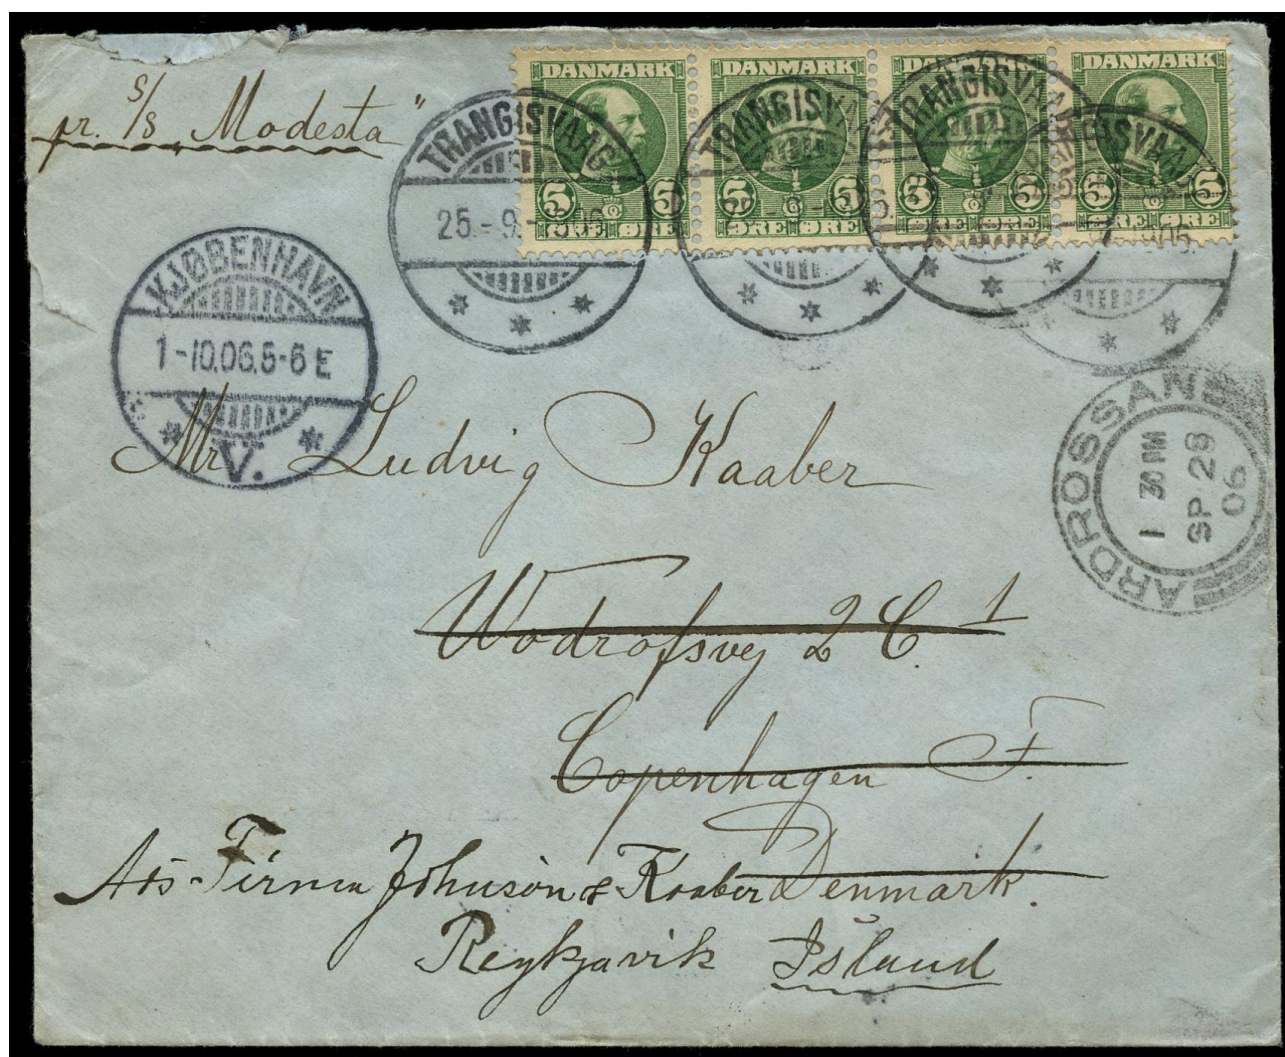 pr. s/s Modesta"
DANMARK DANMARK DANMARK DANMARK
5 5 5 5 5 5 5 5
ØRE ØRE ØRE ØRE ØRE ØRE ØRE
TRANGISVAAG
25.-9.-
TRANGISVAAG
TRANGISVAAG
TRANGISVAAG
KJØBENHAVN
1-10.06.5-6 E
V.
ARDROSSAN
1 30 PM
SP 28
06
Mr Ludvig Kaaber
Wodrofsvej 2 C 1
Copenhagen F.
Denmark.
Firma Johnson & Kaaber
Reykjavik Island